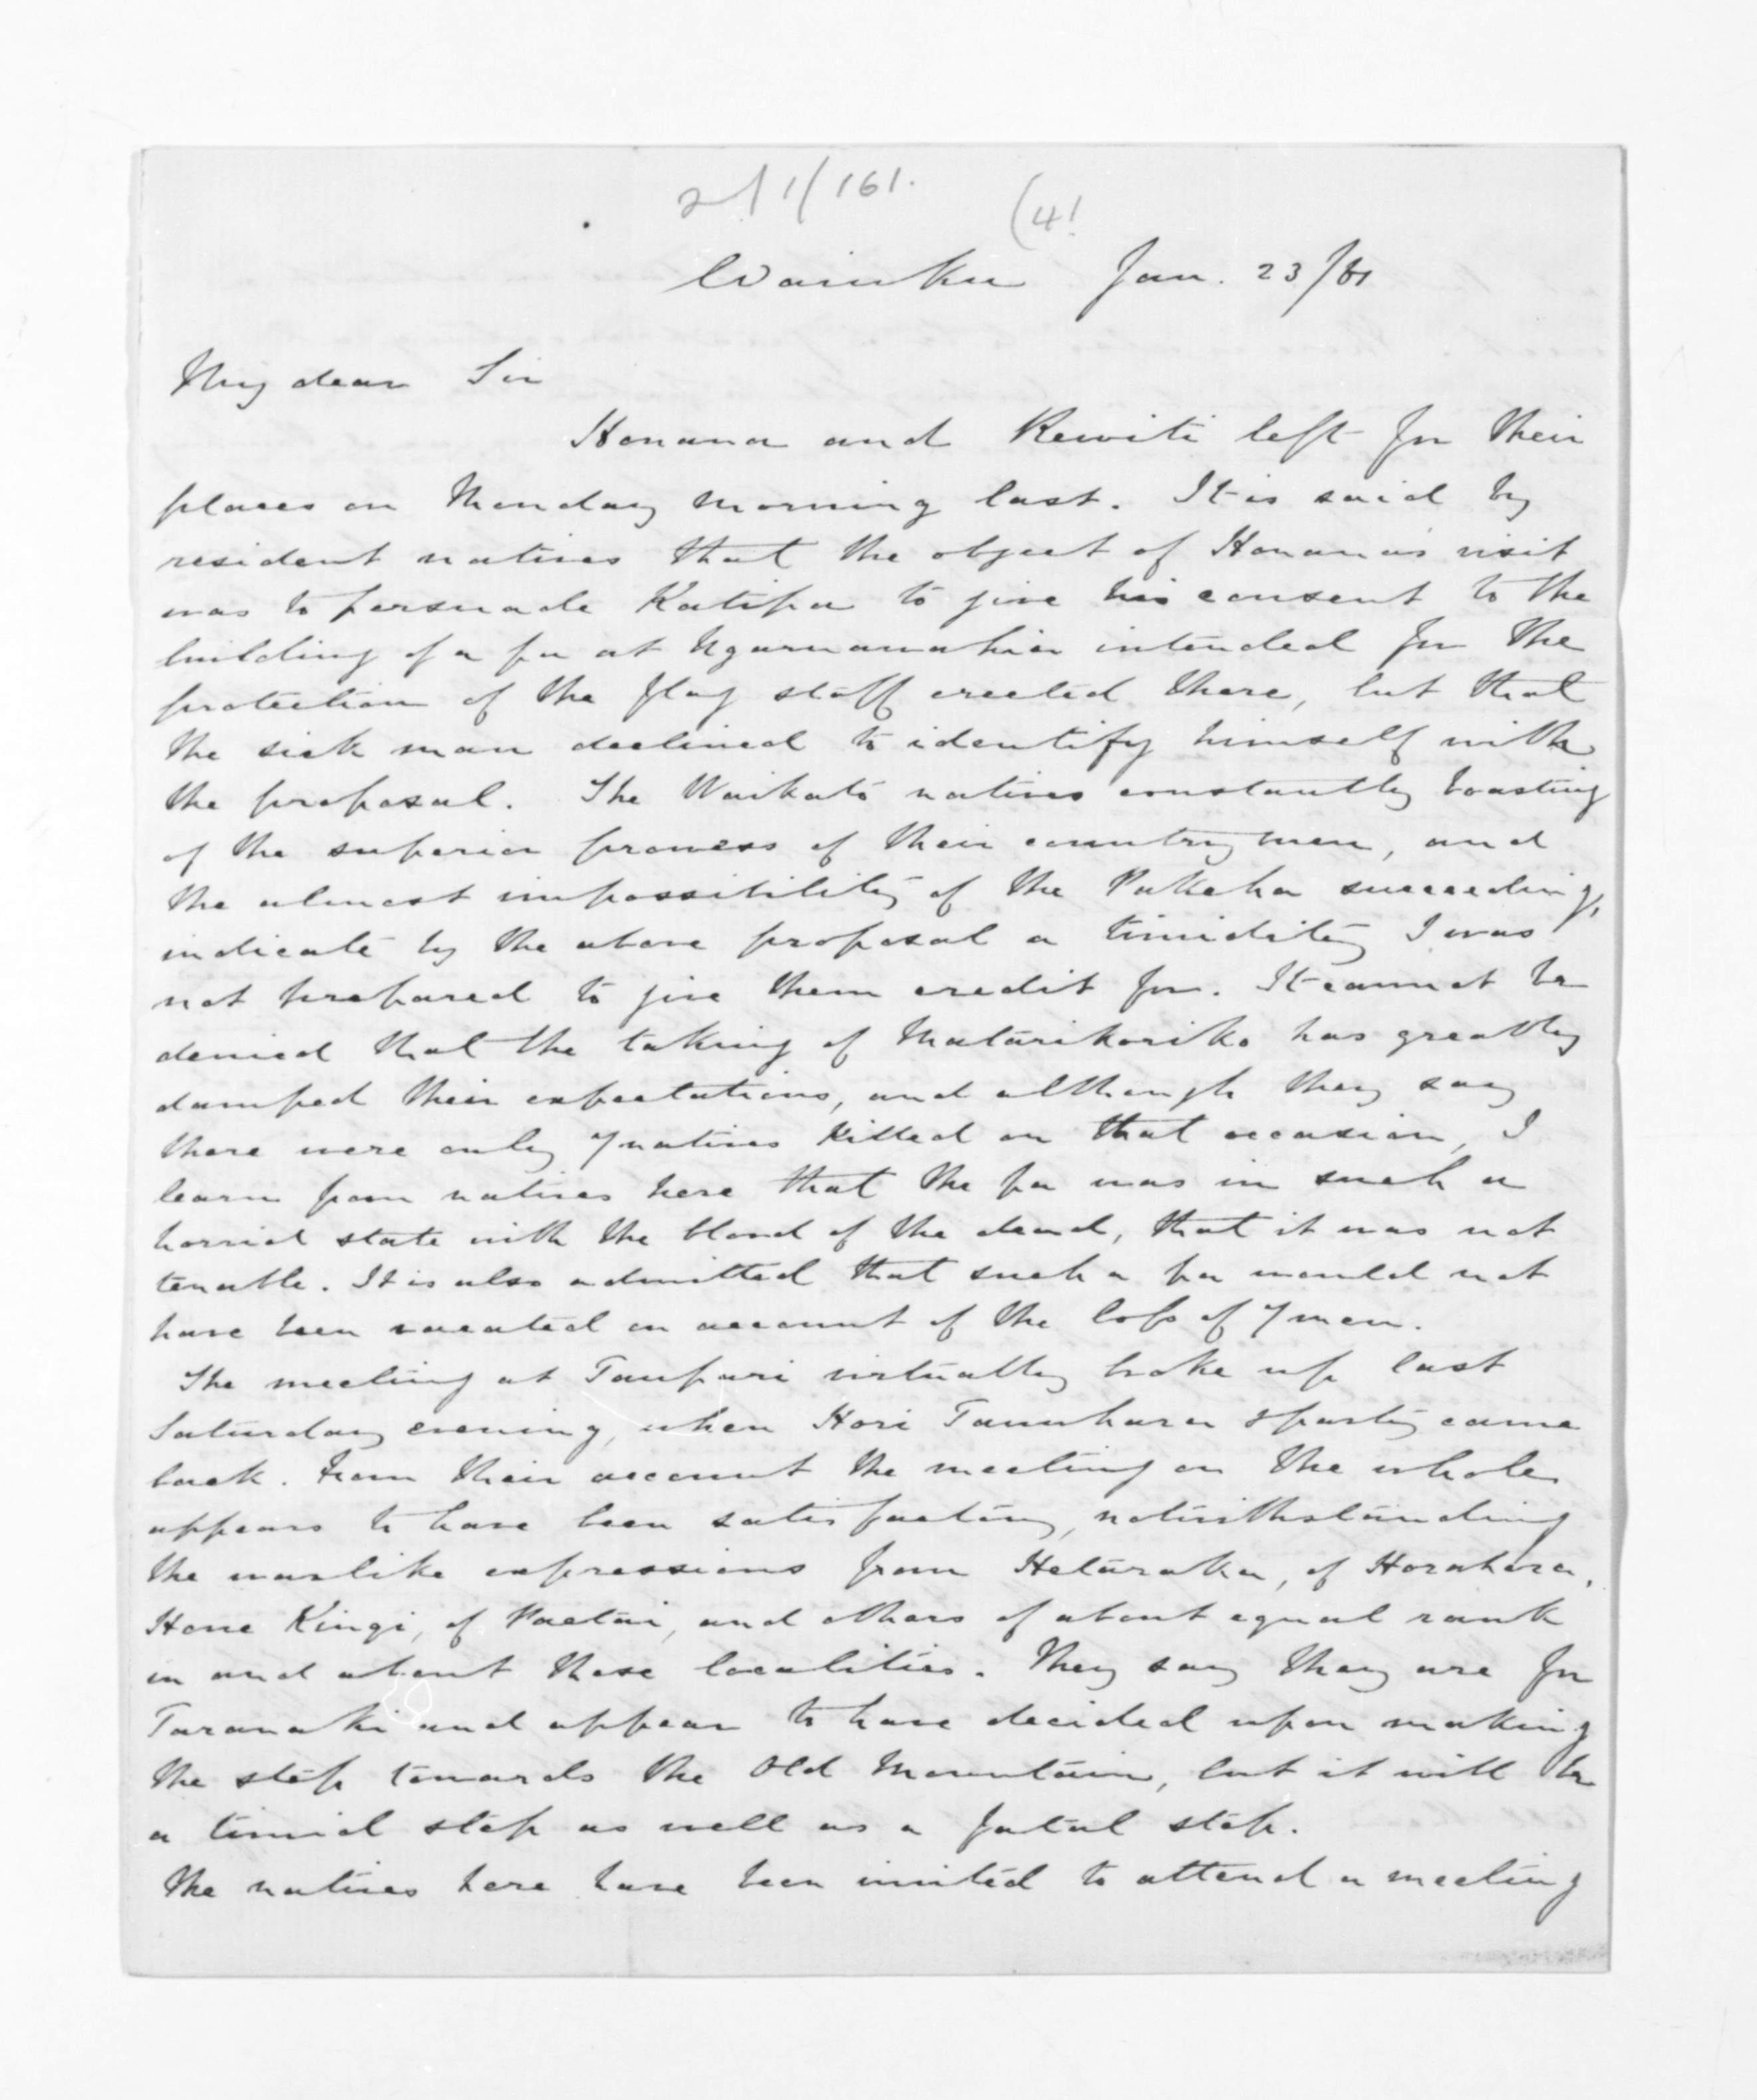 2/1/161.
(4!
Waiuku Jan. 23/61
My dear Sir
Honana and Rewiti left for their
places on Monday morning last. It is said by
resident natives that the object of Honana's visit
was to persuade Katipa to give his consent to the
building of a pa at Ngaruawahia intended for the
protection of the flag staff erected there, but that
the sick man declined to identify himself with
the proposal. The Waikato natives constantly boasting
of the superior prowess of their countrymen, and
the almost impossibility of the Pakeha succeeding,
indicate by the above proposal a timidity I was
not prepared to give them credit for. It cannot be
denied that the taking of Matarikoriko has greatly
damped their expectations, and although they say
there were only 7 natives killed on that occasion, I
learn from natives here that the pa was in such a
horrid state with the blood of the dead, that it was not
tenable. It is also admitted that such a pa would not
have been vacated on account of the loss of 7 men.
The meeting at Taupari virtually broke up last
Saturday evening, when Hori Tauwhara & party came
back. From their account the meeting on the whole
appears to have been satisfactory, notwithstanding
the warlike expressions from Hetaraka, of Horahora,
Hone Kingi, of Paetai, and others of about equal rank
in and about these localities. They say they are for
Taranaki and appear to have decided upon making
the step towards the Old Mountain, but it will be
a timid step as well as a fatal step.
The natives here have been invited to attend a meeting